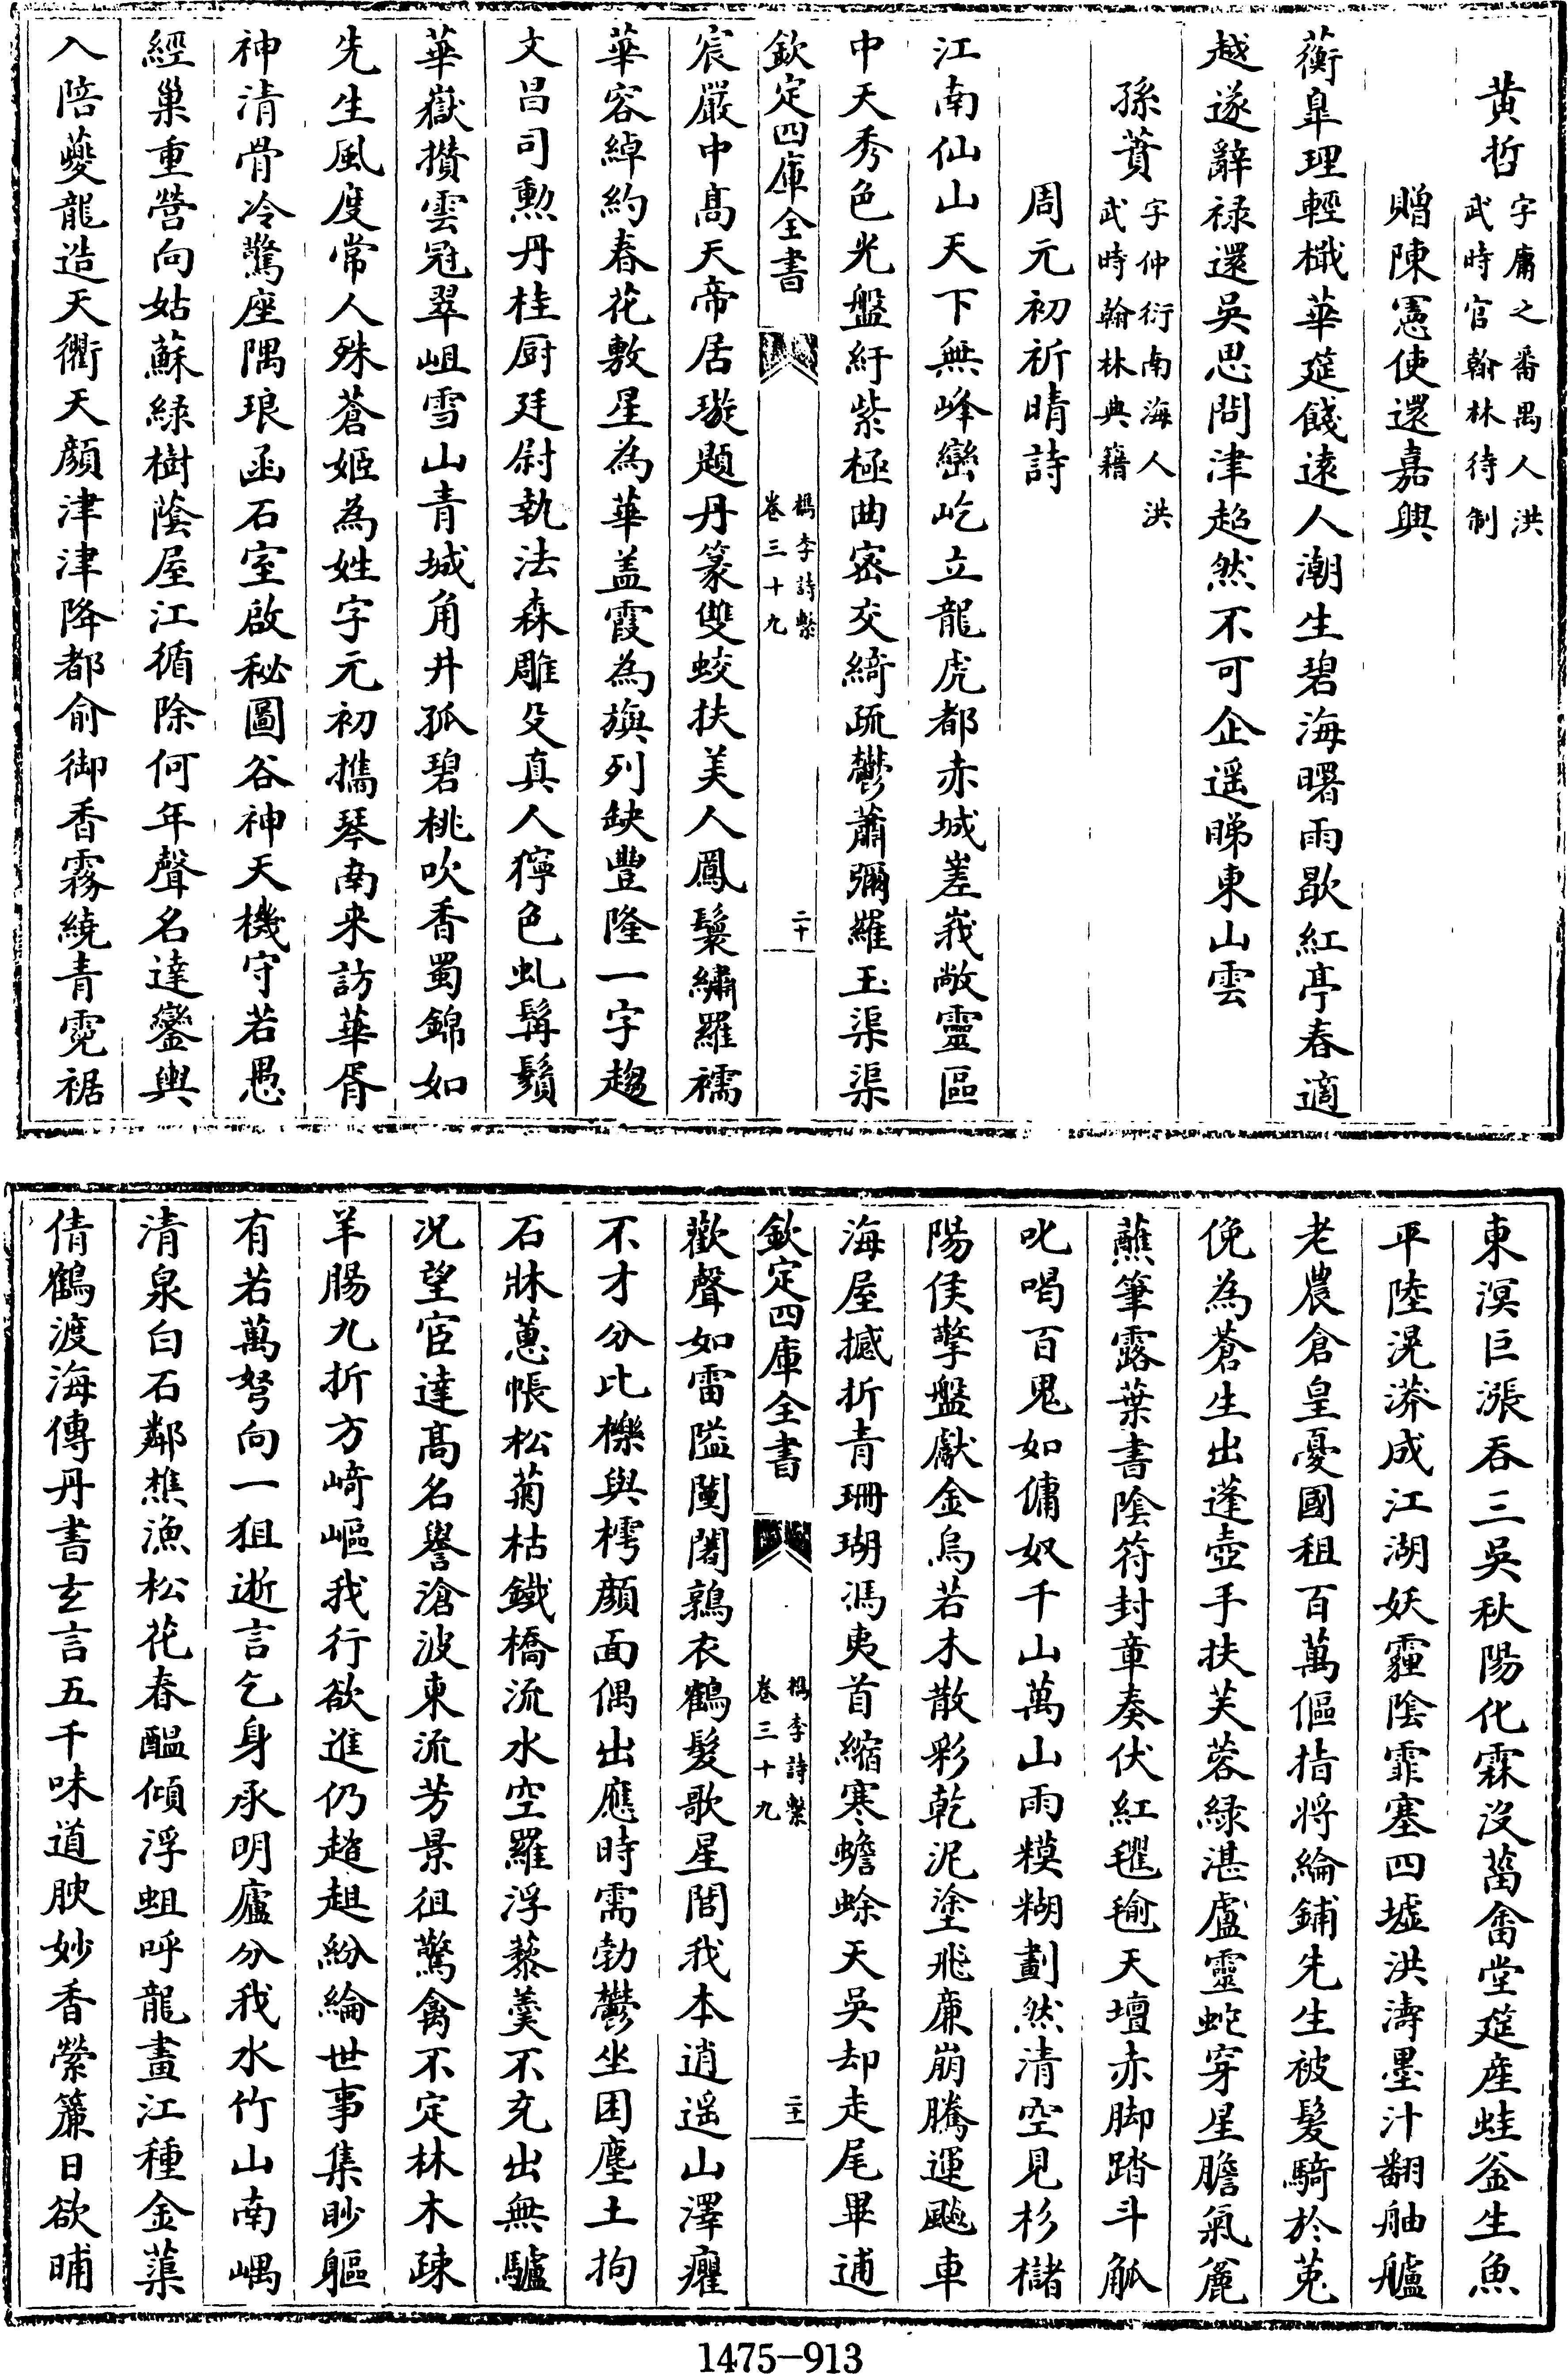 黄哲字庸之番禺人洪武時官翰林待制
贈陳憲使還嘉興
蘅臯理輕檝華筵餞遠人潮生碧海曙雨歇紅亭春適
越遂辭禄還吳思問津超然不可企遥睇東山雲
孫蕡字仲衍南海人洪武時翰林典籍
周元初祈晴詩
江南仙山天下無峰巒屹立龍虎都赤城嵳峩敞靈區
中天秀色光盤紆紫極曲密交綺疏鬱蕭彌羅玉渠渠
欽定四庫全書
檇李詩繫
卷三十九
二十
宸嚴中髙天帝居璇題丹篆雙蛟扶美人鳳鬟繡羅襦
華容綽約春花敷星為華盖霞為旟列缺豐隆一字趨
文昌司勲丹桂厨廷尉執法森雕殳真人獰色虬髯鬚
華嶽攅雲冠翠岨雪山青城角井孤碧桃吹香蜀錦如
先生風度常人殊蒼姬為姓字元初攜琴南来訪華胥
神清骨冷驚座隅琅函石室啟秘圖谷神天機守若愚
經巢重營向姑蘇緑樹蔭屋江循除何年聲名達鑾輿
入陪夔龍造天衢天顔津津降都俞御香霧繞青霓裾
東溟巨漲吞三吳秋陽化霖沒菑畬堂筵産蛙釡生魚
平陸滉漭成江湖妖霾陰霏塞四墟洪濤墨汁翻舳艫
老農倉皇憂國租百萬傴指將綸鋪先生被髮騎於菟
俛為蒼生出蓬壺手扶芙蓉緑湛盧靈蛇穿星膽氣麄
蘸筆露葉書陰符封章奏伏紅氍毹天壇赤脚踏斗觚
叱喝百鬼如傭奴千山萬山雨糢糊劃然清空見杉櫧
陽侯擎盤獻金烏若木散彩乾泥塗飛廉崩騰運颷車
海屋撼折青珊瑚馮夷首縮寒蟾蜍天吳却走尾畢逋
欽定四庫全書
檇李詩繫
卷三十九
二十一
歡聲如雷隘闉闍鶉衣鶴髮歌星閭我本逍遥山澤癯
不才分比櫟與樗顔面偶出應時需勃鬱坐困塵土拘
石牀蕙帳松菊枯鐵橋流水空羅浮藜羹不充出無驢
况望宦達髙名譽滄波東流芳景徂驚禽不定林木疎
羊腸九折方﨑嶇我行欲進仍趑趄紛綸世事集眇軀
有若萬弩向一狙逝言乞身承明廬分我水竹山南嵎
清泉白石鄰樵漁松花春醖傾浮蛆呼龍畫江種金蕖
倩鶴渡海傳丹書玄言五千味道腴妙香縈簾日欲晡
1475-913